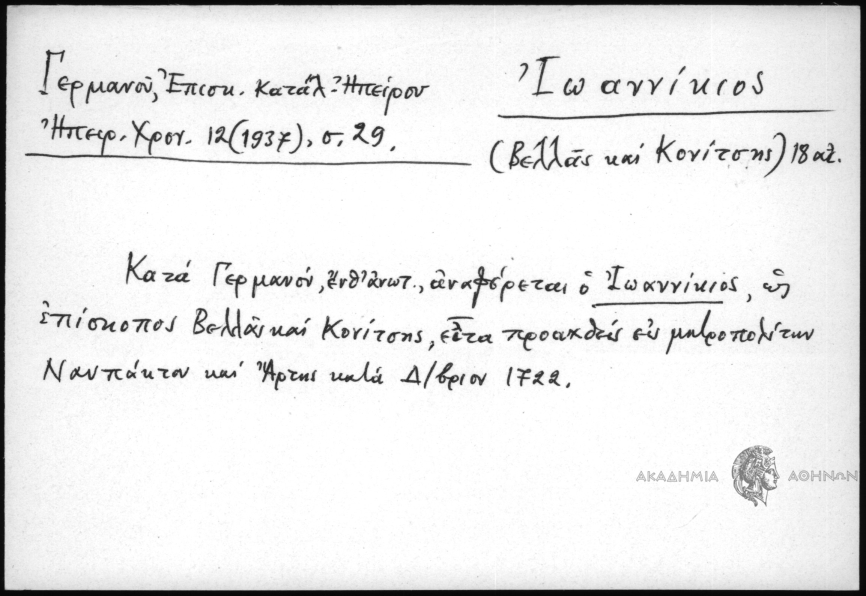 Γερμανοῦ, Ἐπισκ. κατάλ. Ἠπείρου
Ἠπειρ. Χρον. 12(1937), σ. 29.
Ἰωαννίκιος
(Βελλᾶς καί Κονίτσης) 18 αἰ.
Κατά Γερμανόν, ἔνθ' ἀνωτ., ἀναφέρεται ὁ Ἰωαννίκιος, ὡς
ἐπίσκοπος Βελλᾶς καί Κονίτσης, εἶτα προαχθείς εἰς μητροπολίτην
Ναυπάκτου καί Ἄρτης κατά Δ/βριον 1722.
ΑΚΑΔΗΜΙΑ ΑΘΗΝΩΝ